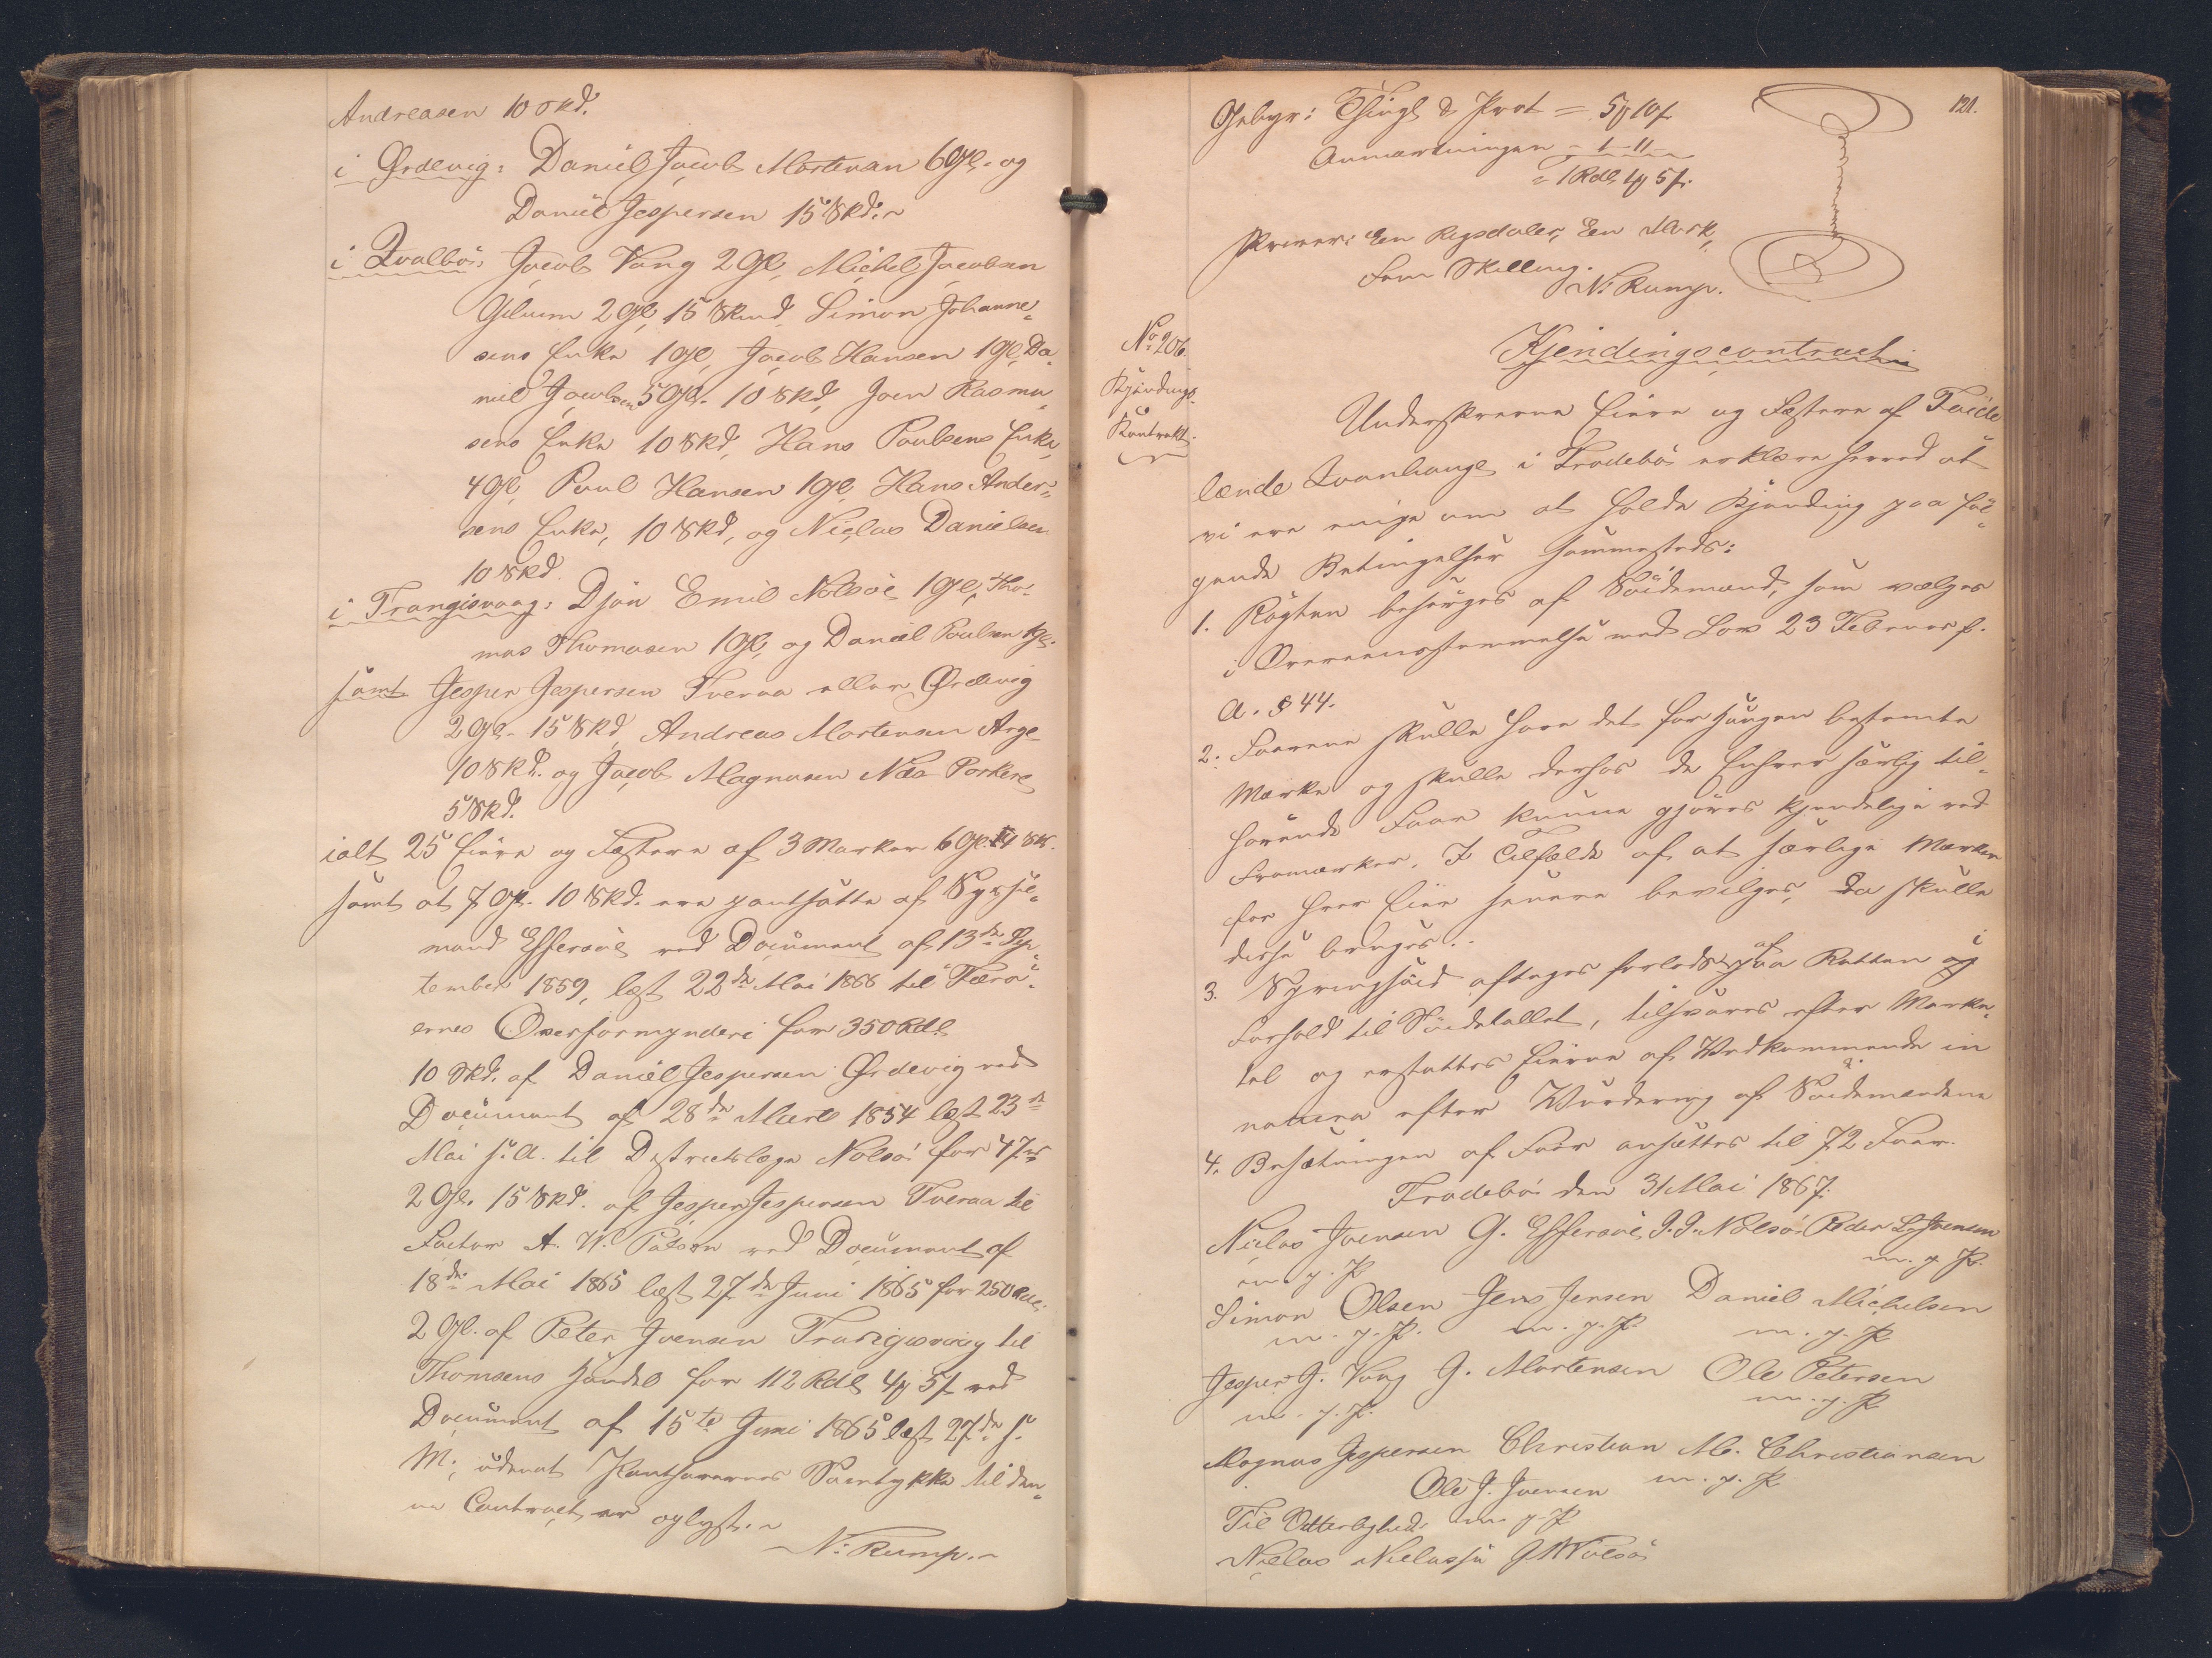 Andreasen 10 Skd.
i Ørdevig: Daniel Jacob Mortensen 6 Gl. og
Daniel Jespersen 15 Skd. ~
i Qvalbø: Jacob Vang 2 Gl, Michel Jacobsen
2 Gl, 15 Skind, Simon Johanne-
sens Enke 1 Gl, Jacob Hansen 1 Gl, Da-
niel Jacobsen 5 Gl. 10 Skd, Joen Rasmu-
sens Enke 10 Skd, Hans Poulsens Enke,
4 Gl, Poul Hansen 1 Gl, Hans Ander-
sens Enke, 10 Skd, og Niclas Danielsen
10 Skd.
i Trangisvaag: Djón Emil Nolsøe 1 Gl, Tho-
mas Thomasen 1 Gl, og Daniel Poulsen 1 Gl.
samt Jesper Jespersen Tveraa eller Ørdevig
2 Gl. 15 Skd, Andreas Mortensen Arge
10 Skd. og Jacob Magnusen Næs Porkere
5 Skd.
ialt 25 Eiere og Fæstere af 3 Marker 6 Gl. 14 Sk.
samt at 7 Gl. 10 Skd. ere pantsatte af Syssel-
mand Effersøe ved Document af 13de Sep-
tember 1859, læst 22de Mai 1866 til Færø-
ernes Overformynderi for 350 Rdl.
10 Skd. af Daniel Jespersen Ørdevig ved
Document af 28de Marts 1854 læst 23de
Mai s. A. til Districtslæge Nolsøe for 47
2 Gl. 15 Skd. af Jesper Jespersen Tveraa til
Factor A. W. ved Document af
18de Mai 1865 læst 27de Juni 1865 for 250 Rdl.
2 Gl. af Peter Joensen Trangisvaag til
Thomsens Handel for 112 Rdl 4 ₥ 5 ſ ved
Document af 15te Juni 1865 læst 27de s.
M., udenat Panthavernes Samtykke til den-
ne Contract er oplyst. ~
N. Rump. ~
121.
Gebyr: Thingl & Prot = 5 ₥ 10 ſ
Anmærkningen - 1 - 11 -
= 1 Rdl, 1 ₥ 5 ſ.
skriver: Een Rigsdaler, Een Mark,
Fem Skilling.
N. Rump.
No 206.
Kjendings-
Kontrakt.
Kjendingscontract
Underskrevne Eiere og Fæstere af
lænde i Frodebø erklære herved at
vi ere enige om at holde Kjending paa føl-
gende Betingelser sammesteds:
1. Røgten besørges af Søidemænd, som vælges
i Overeensstemmelse med Lov 23 Februar f.
A. § 44.
2. Faarene skulle have det for Haugen bestemte
Mærke og skulle derhos de Enhver særlig til-
hørende Faar kunne gjøres kjendelige ved
Framærker. I Tilfælde af at særlige Mærker
for hver Eier senere bevilges, da skulle
disse bruges.
3. aftages forlods af paa Retten og i
Forhold til Søidetallet, tilsvares efter Marke-
tal og erstattes Eierne af Vedkommende in
natura efter Vurdering af Søidemændene
4. Besætningen af Faar ansættes til 72 Faar.
Frodebø den 31 Mai 1867.
Niclas Joensen G. Effersøe J. J. Nolsøe Peder L. Joensen
m. p. P. m. p. P.
Simon Olsen Jens Jensen Daniel Michelsen
m. p. P. m. p. P. m. p. P
Jesper J. Vang J. Mortensen Ole Petersen
m. p. P. m. p. P
Magnus Jespersen Christian M. Christiansen
Ole J. Joensen m. p. P
Til Vitterlighed: m p P
Niclas